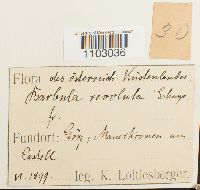 30
1103036
Flora des österreich. Küstenlandes
Barbula revoluta Schwgr
fr.
Fundort: Görz, Mauerkronen am
Castell
VI. 1899. leg. K. Loitlesberger.